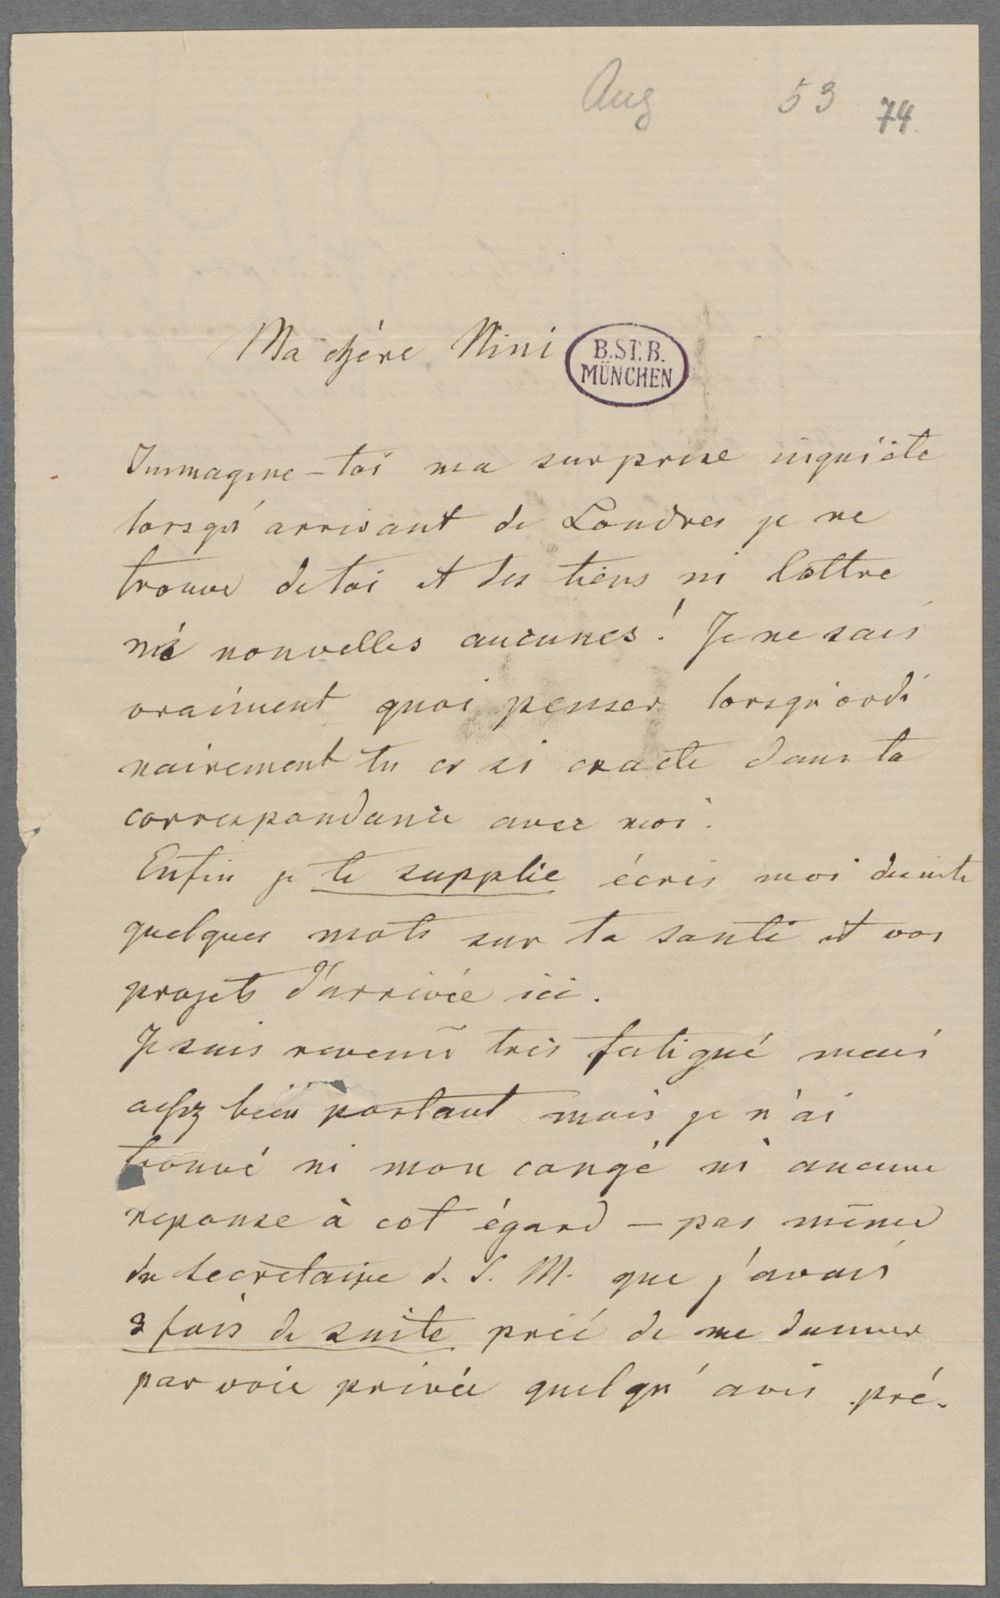 Aug 53 74
Ma chère Nini
B.ST.B.
MÜNCHEN
Immagine-toi ma surprise inquiète
lorsqu'arrivant de Londres je ne
trouve de toi et des tiens ni lettre
ni nouvelles aucunes! Je ne sais
vraiment quoi penser lorsqu'ordi
nairement tu es si exacte dans ta
correspondance avec moi.
Enfin je te supplie écris moi de suite
quelques mots sur ta santé et vos
projets d'arrivée ici.
Je suis revenu très fatigué mais
assez bien portant mais je n'ai
trouvé ni mon congé ni aucune
reponse à cet égard — pas même
du Secrétaire d. S. M. que j'avais
3 fois de suite prié de me donner
par voie privée quelqu'avis pré-